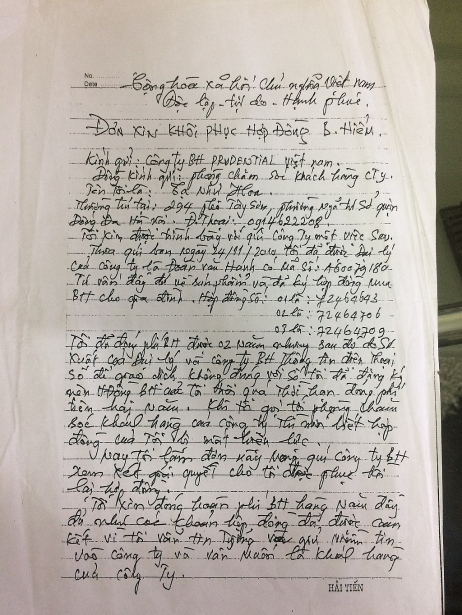 No.
Date
Cộng hòa xã hội Chủ nghĩa Việt nam
Độc lập - tự do - Hạnh phúc.
ĐƠN XIN KHÔI PHỤC HỢP ĐỒNG B. HIỂM.
Kính gửi: Công ty BH PRUDENTIAL Việt nam.
Đồng Kính gửi: phòng chăm sóc khách hàng CTy.
Tên tôi là: Tạ Như Hoa.
Thường trú tại: 294 phố Tây Sơn, phường Ngã Tư Sở quận
Đống Đa Hà Nội. Đ.Thoại: 0914622208.
Tôi xin được trình bày với quí Công Ty một việc sau.
Thưa quí ban ngày 24/11/2010 tôi đã được Đại lý
của công ty là Đoàn Văn Hanh có Mã Số: A60079180
Tư vấn đầy đủ về sản phẩm và đã ký hợp đồng mua
BH cho gia đình. Hợp đồng số: 01 là: 72464693
02 là: 72464706
03 là: 72464709
Tôi đã đóng phí BH được 02 năm nhưng sau đó do
của Đại lý và công ty BH thông tin điện thoại
Số để giao dịch không đúng với số tôi đã đăng ký
nên Hợp đồng BH của tôi thời quá thời hạn đóng phí
trên hai năm. Khi tôi gọi tới phòng chăm
sóc khách hàng của công ty thì mới biết hợp
đồng của tôi bị mất hiệu lực.
Nay tôi làm đơn này mong quí công ty BH
xem xét giải quyết cho tôi được phục hồi
lại hợp đồng.
Tôi xin đóng hoàn phí BH hàng năm đầy
đủ như các khoản hợp đồng đã được cam
kết vì tôi vẫn tin tưởng giữ niềm tin
vào công ty và vẫn muốn là khách hàng
của công ty.
HẢI TIẾN